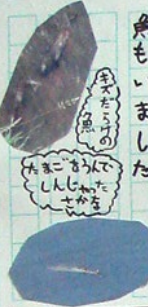 魚もいました
キズだらけの
魚
たまごをうんで
しんじゃった
さかな